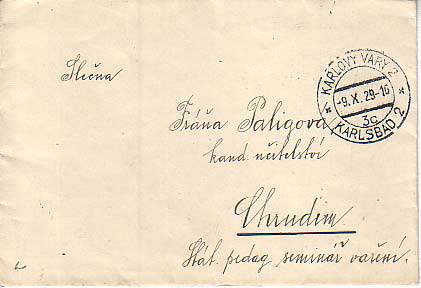 KARLOVY VARY 2
-9.X.29-16
3c
KARLSBAD 2
Slečna
Fráňa Paligova
kand. učitelství
Chrudim
Stát. pedag. seminář vaření.